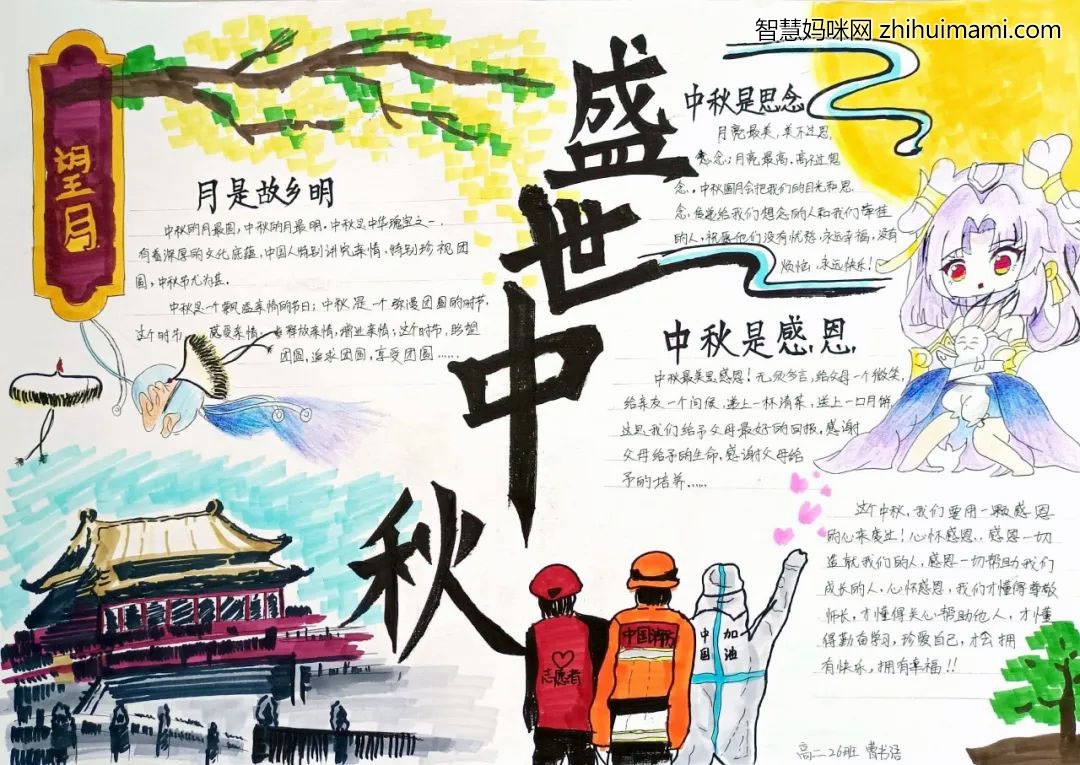 智慧妈咪网 zhihuimami.com
望月
盛世中秋
月是故乡明
中秋的月最圆,中秋的月最明,中秋是中华瑰宝之一,
有着深厚的文化底蕴,中国人特别讲究亲情,特别珍视团
圆,中秋节尤为甚。
中秋是一个飘溢亲情的节日;中秋是一个弥漫团圆的时节,
这个时节,感受亲情、释放亲情、增进亲情;这个时节,盼望
团圆、追求团圆、享受团圆……
中秋是思念
月亮最美,美不过思
念;月亮最高,高不过想
念。中秋圆月会把我们的目光和思
念,传递给我们想念的人和我们牵挂
的人,祝愿他们没有忧愁,永远幸福,没有
烦恼,永远快乐!
中秋是感恩
中秋最美是感恩!无须多言,给父母一个微笑,
给亲友一个问候,递上一杯清茶,送上一口月饼
这是我们给予父母最好的回报,感谢
父母给予的生命,感谢父母给
予的培养……
这个中秋,我们要用一颗感恩
的心来度过!心怀感恩,感恩一切
造就我们的人,感恩一切帮助我们
成长的人,心怀感恩,我们才懂得尊敬
师长,才懂得关心帮助他人,才懂
得勤奋学习,珍爱自己,才会拥
有快乐,拥有幸福!!
志愿者
中国消防
中国
加油
高二26班